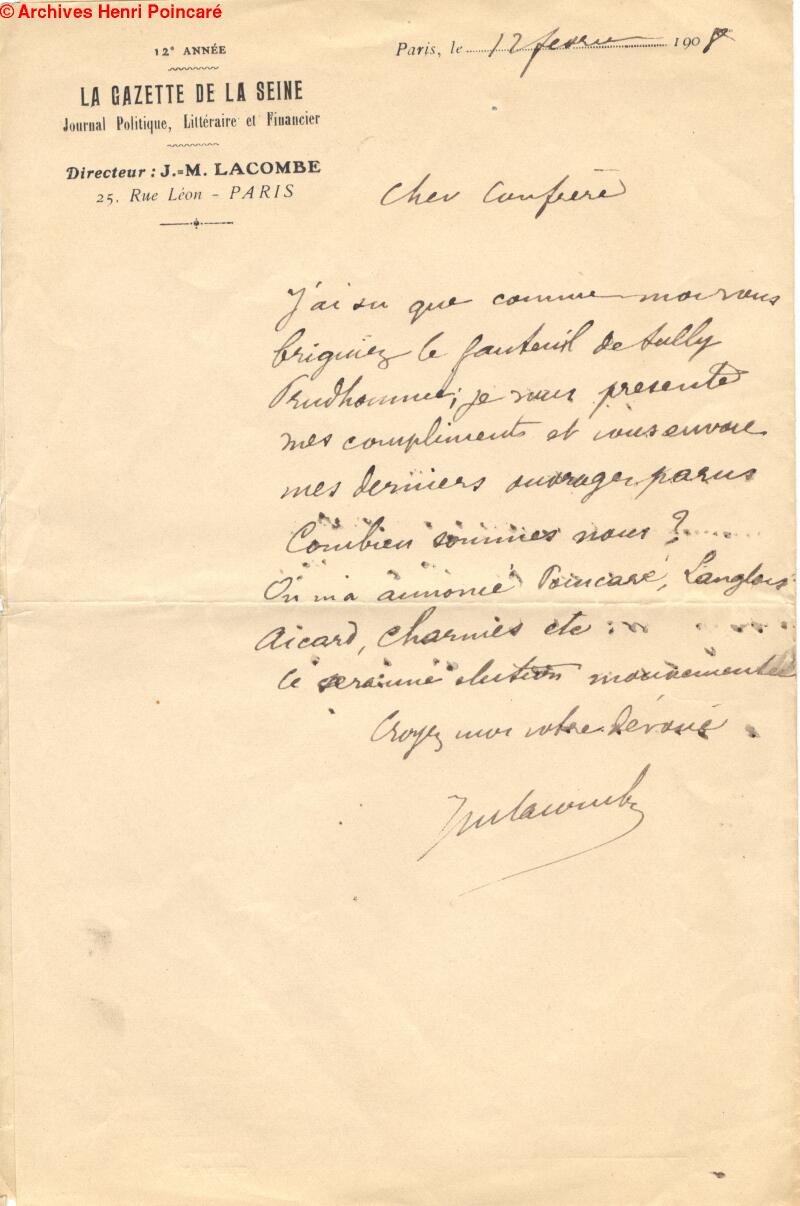 © Archives Henri Poincaré
12e ANNÉE
LA GAZETTE DE LA SEINE
Journal Politique, Littéraire et Financier
Directeur : J.=M. LACOMBE
25, Rue Léon - PARIS
Paris, le 12 fevrier 1908
Cher Confrère
J'ai su que comme moi vous
briguiez le fauteuil de Sully
Prudhomme ; je vous présente
mes compliments et vous envoie
mes derniers ouvrages parus
Combien sommes nous ? .....
On m'a annoncé Poincaré, Langlois
Aicard, Charmes etc ...
Ce sera une élection mouvementée
Croyez moi votre dévoué
JM Lacombe